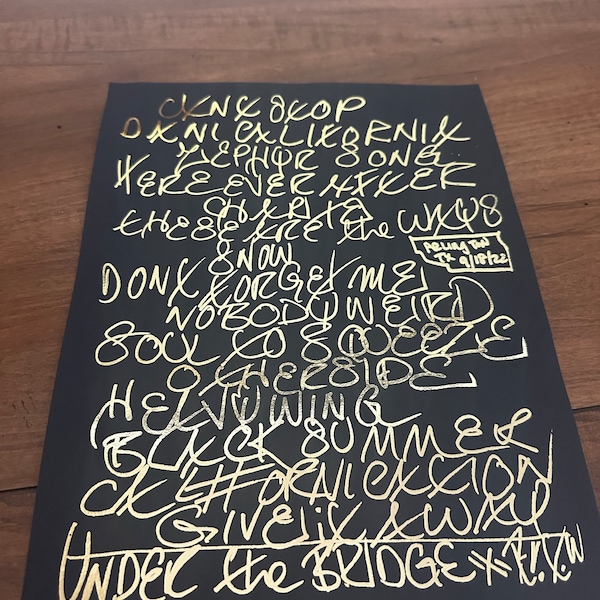 CAN'T STOP
DANI CALIFORNIA
ZEPHYR SONG
HERE EVER AFTER
THESE ARE the WAYS
SNOW
ARLINGTON
TX 9/18/22
DON'T FORGET ME
NOBODY WEIRD
SOUL TO SQUEEZE
OTHERSIDE
HEAVY WING
BLACK SUMMER
CALIFORNICATION
GIVE it AWAY
UNDER the BRIDGE